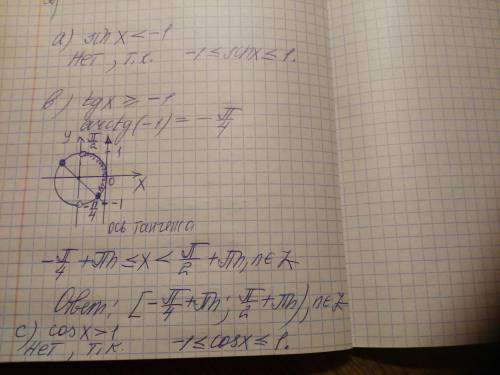 a) sin x < -1
Нет, т.к. -1 ≤ sin x ≤ 1.
в) tg x ≥ -1
arctg(-1) = -π/4
y π/2
1
0 x
-π/4 -1
ось тангенса
-π/4 + πn ≤ x < π/2 + πn, n∈Z
Ответ: [-π/4 + πn; π/2 + πn), n∈Z
c) cos x > 1
Нет, т.к. -1 ≤ cos x ≤ 1.